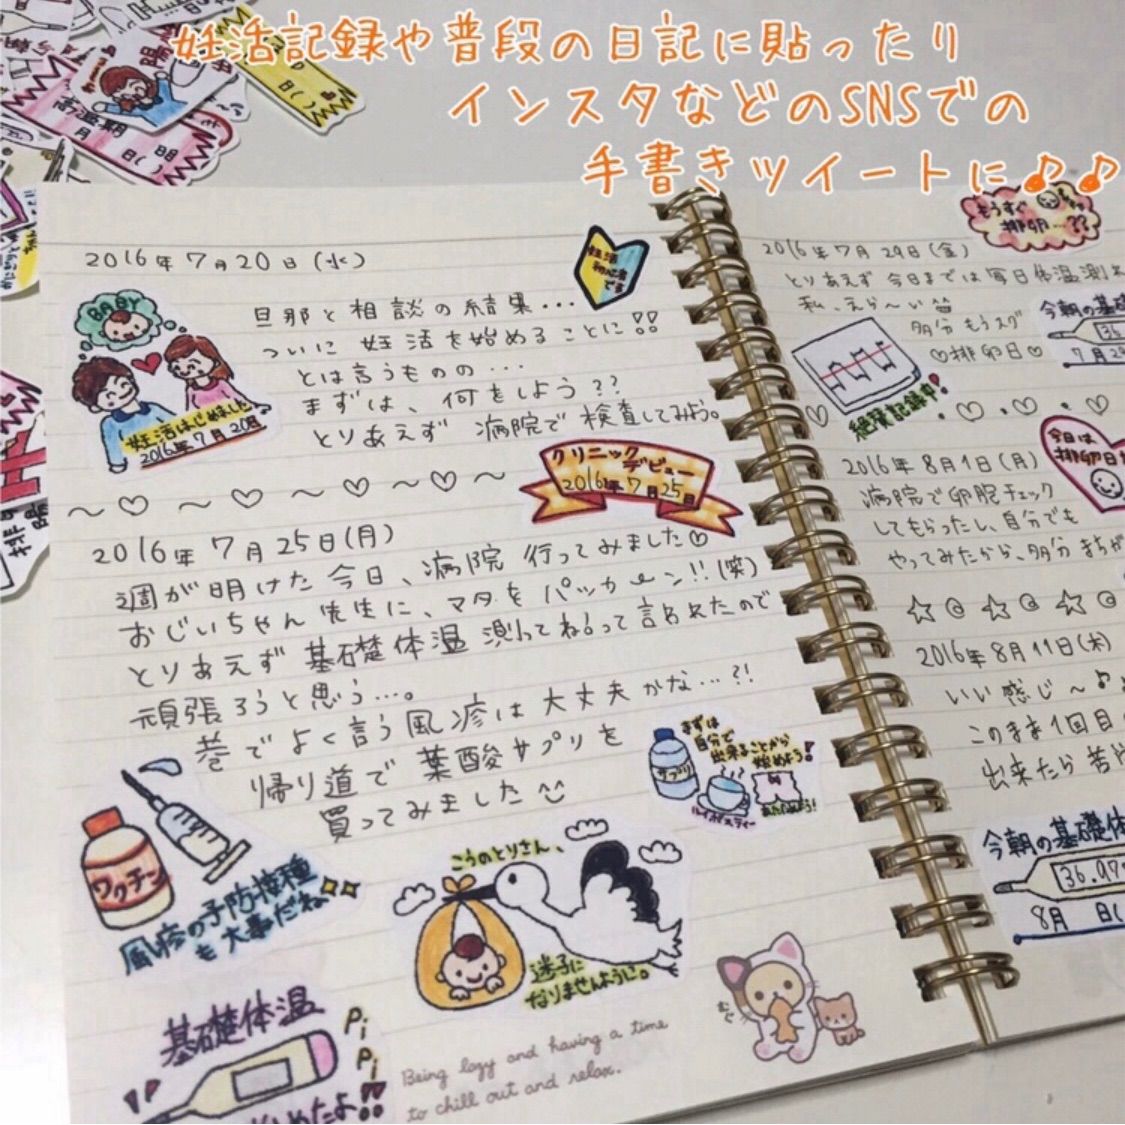 妊活記録や普段の日記に貼ったり
インスタなどのSNSでの
手書きツイートに♪♪
高温期
月 日
日( )
2016年7月20日(水)
妊活
初心者
です
BABY
旦那と相談の結果...
ついに 妊活を始めることに!!
とは言うものの...
まずは、何をしよう??
とりあえず 病院で検査してみよう。
妊活はじめました
2016年7月20日
クリニック
デビュー
2016年7月25日
2016年7月25日(月)
週が明けた今日、病院行ってみました♡
おじいちゃん先生に、マタをパッカーン!!(笑)
とりあえず 基礎体温 測ってね!って言われたので
頑張ろうと思う...。
巷でよく言う風疹は大丈夫かな...?!
帰り道で 葉酸サプリを
買ってみました
まずは
自分で
出来ることから
始めよう!
サプリ
ルイボスティー
ワクチン
風疹の予防接種
も大事だね
こうのとりさん、
迷子に
なりませんように。
基礎体温
Pi
Pi
!!
むぐ
Being lazy and having a time
to chill out and relax.
もうすぐ
排卵...??
2016年7月29日(金)
とりあえず今日までは毎日体温測れ
私、えら〜い
多分もうスグ
♡排卵日♡
今朝の基礎
36
7月29
絶賛記録中!
今日は
排卵日
2016年8月1日(月)
病院で卵胞チェック
してもらったし、自分でも
やってみたから、多分まちが
2016年8月11日(木)
いい感じ〜♪
このまま1回目
出来たら
今朝の基礎体
36.97
8月 日(